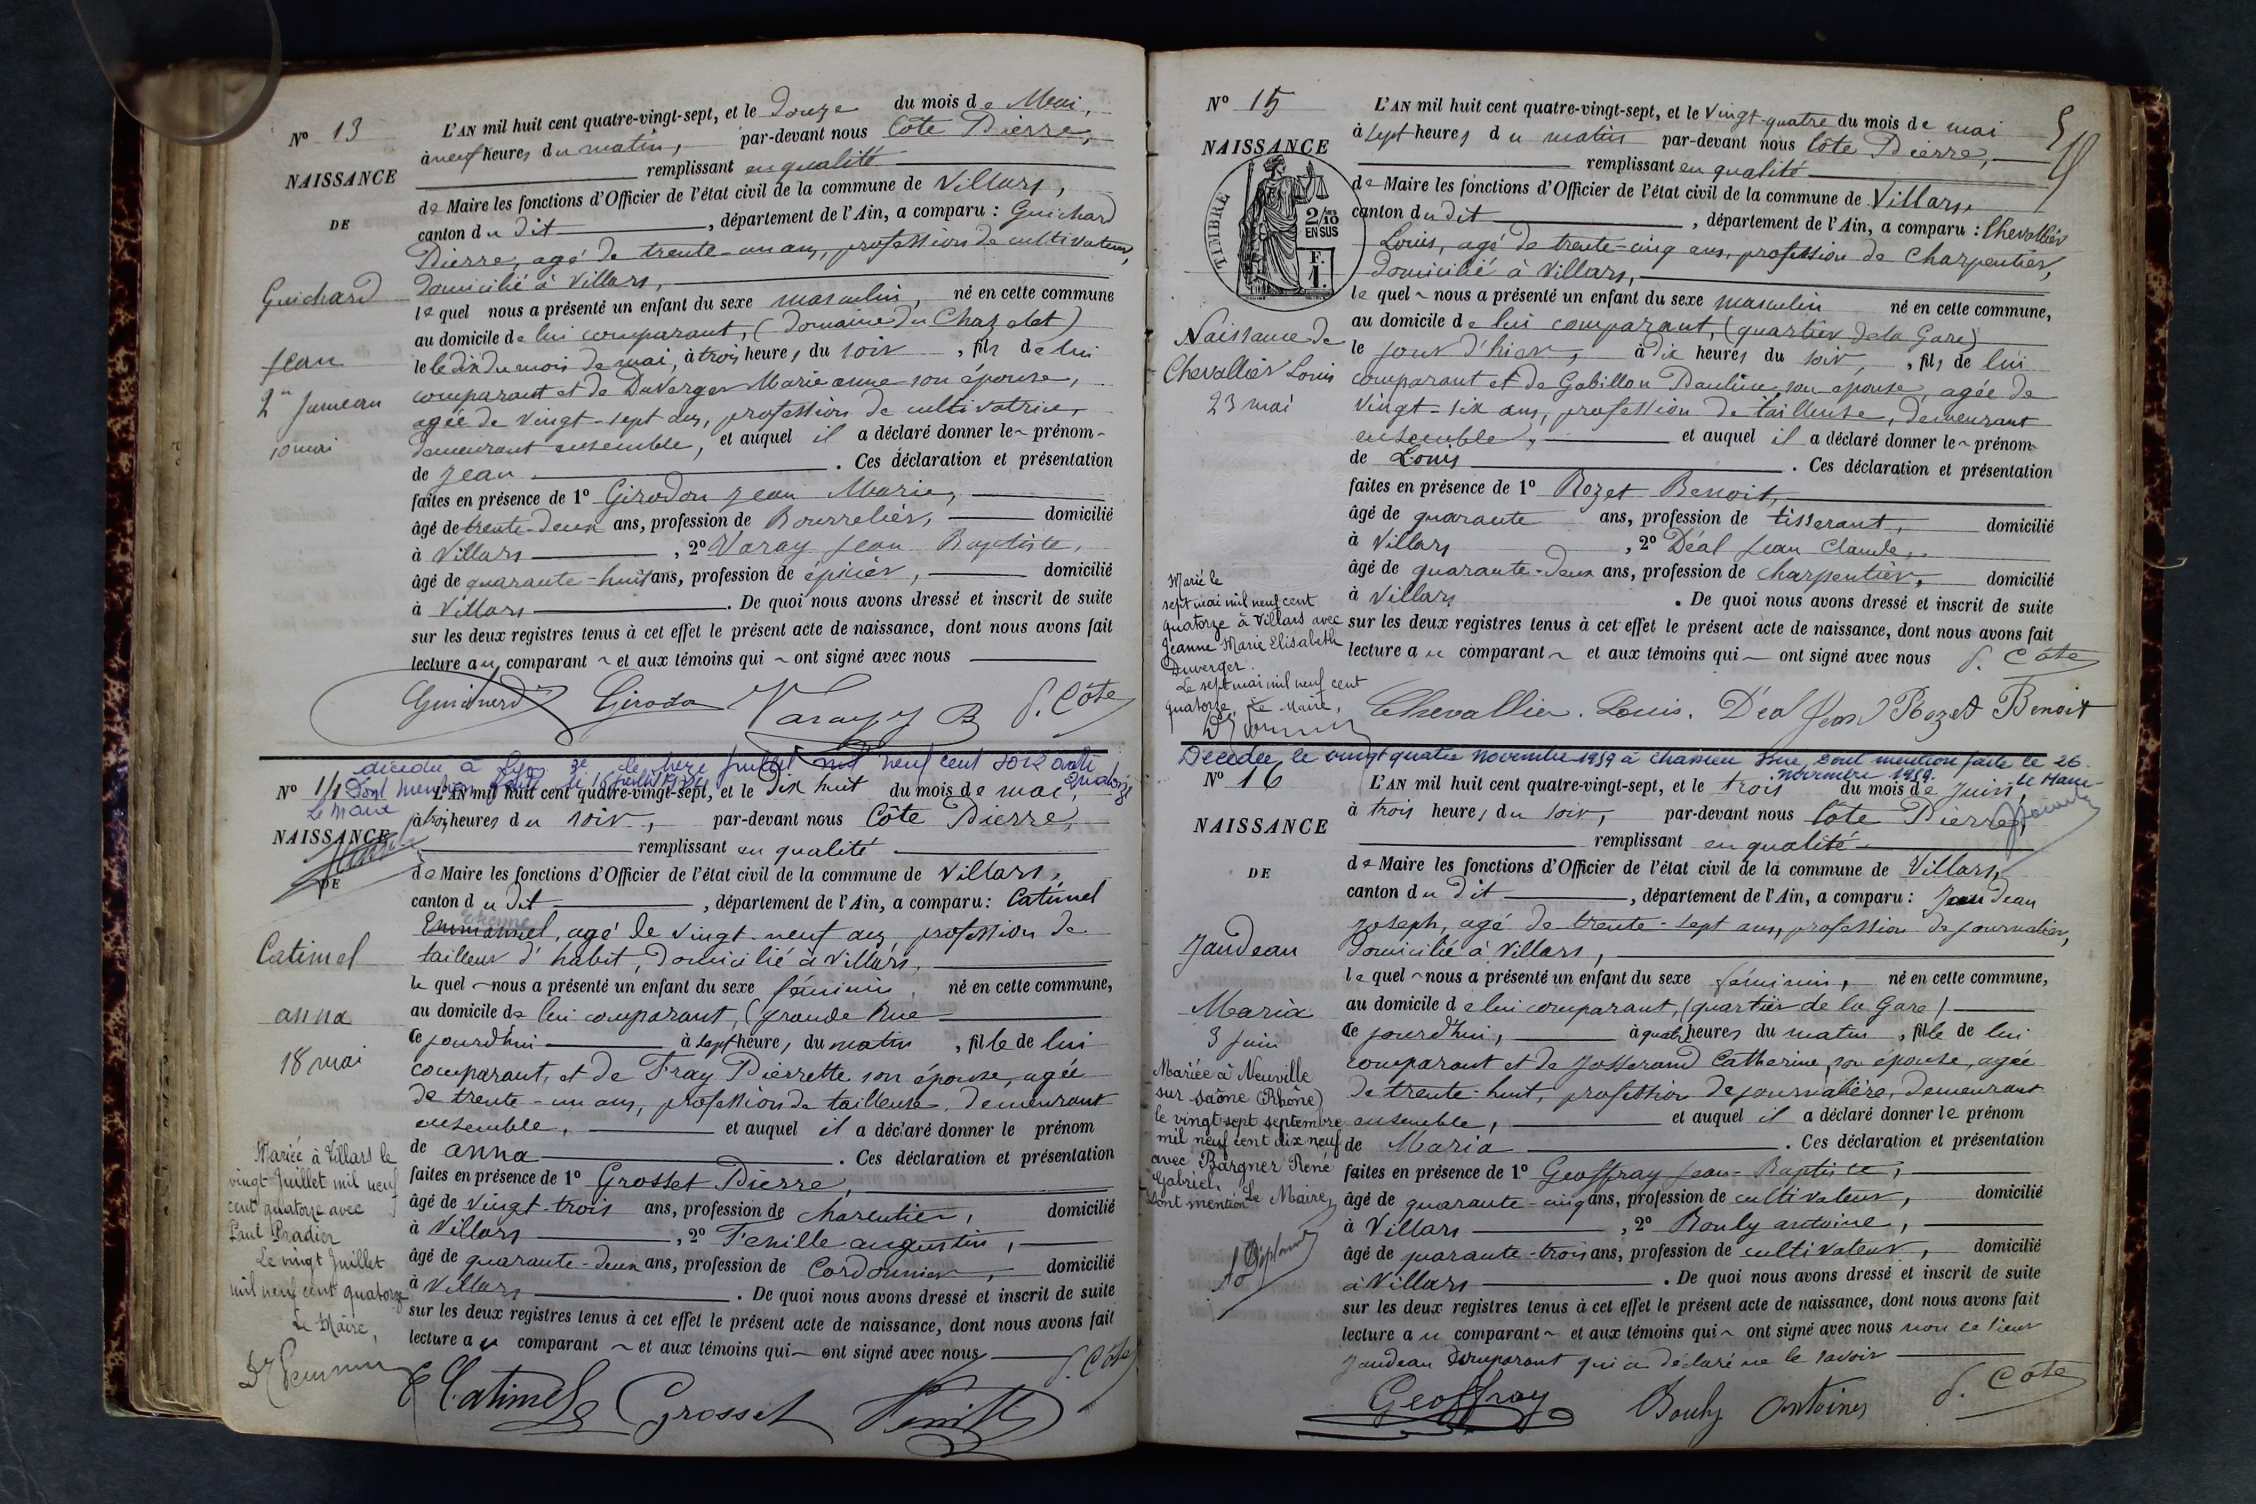 N° 13
NAISSANCE
DE
Guichard
Jean
2me Jumeau
10 mai
L'AN mil huit cent quatre-vingt-sept, et le Douze du mois de Mai,
à neuf heures du matin, par-devant nous Côte Pierre,
remplissant en qualité
de Maire les fonctions d'Officier de l'état civil de la commune de Villars,
canton du dit, département de l'Ain, a comparu : Guichard
Pierre, agé de trente-un ans, profession de cultivateur,
domicilié à Villars,
lequel nous a présenté un enfant du sexe masculin, né en cette commune
au domicile de lui comparant, (domaine du Chazelet)
le le dix du mois de mai, à trois heures du soir, fils de lui
comparant et de Duverger Marie anne son épouse,
agée de vingt-sept ans, profession de cultivatrice,
demeurant ensemble, et auquel il a déclaré donner le prénom
de Jean. Ces déclaration et présentation
faites en présence de 1° Girodon Jean Marie,
âgé de trente-deux ans, profession de Bourrelier, domicilié
à Villars, 2° Varay Jean Baptiste,
âgé de quarante-huit ans, profession de épicier, domicilié
à Villars. De quoi nous avons dressé et inscrit de suite
sur les deux registres tenus à cet effet le présent acte de naissance, dont nous avons fait
lecture au comparant et aux témoins qui ont signé avec nous
Guichard Girodon Varay J B P. Côte
décédée à Lyon 3e le treize juillet mil neuf cent soixante quatorze
Dont mention faite le 16 juillet 1974
Le Maire
N° 14
NAISSANCE
DE
Catimel
anna
18 mai
L'AN mil huit cent quatre-vingt-sept, et le Dix huit du mois de mai,
à trois heures du soir, par-devant nous Côte Pierre,
remplissant en qualité
de Maire les fonctions d'Officier de l'état civil de la commune de Villars,
canton du dit, département de l'Ain, a comparu : Catimel
Etienne
Emmanuel, agé de vingt-neuf ans, profession de
tailleur d'habit, domicilié à Villars,
lequel nous a présenté un enfant du sexe féminin, né en cette commune,
au domicile de lui comparant, (grande Rue
Ce jourd'hui à sept heures du matin, fille de lui
comparant, et de Fray Pierrette son épouse, agée
de trente-un ans, profession de tailleuse, demeurant
ensemble, et auquel il a déclaré donner le prénom
de anna. Ces déclaration et présentation
faites en présence de 1° Grosset Pierre,
âgé de vingt-trois ans, profession de charentier, domicilié
à Villars, 2° Fenille augustin,
âgé de quarante-deux ans, profession de Cordonnier, domicilié
à Villars. De quoi nous avons dressé et inscrit de suite
sur les deux registres tenus à cet effet le présent acte de naissance, dont nous avons fait
lecture au comparant et aux témoins qui ont signé avec nous
P. Côte
E Catimel Grosset Fenille
Mariée à Villars le
vingt Juillet mil neuf
cent quatorze avec
Paul Pradier
Le vingt Juillet
mil neuf cent quatorze
Le Maire,
N° 15
NAISSANCE
TIMBRE
2/10
EN SUS
F.
1.
Naissance de
Chevallier Louis
23 mai
L'AN mil huit cent quatre-vingt-sept, et le vingt-quatre du mois de mai
à sept heures du matin par-devant nous Côte Pierre,
remplissant en qualité
de Maire les fonctions d'Officier de l'état civil de la commune de Villars,
canton du dit, département de l'Ain, a comparu : Chevallier
Louis, agé de trente-cinq ans, profession de Charpentier,
domicilié à Villars,
lequel nous a présenté un enfant du sexe masculin né en cette commune,
au domicile de lui comparant, (quartier de la Gare)
le jour d'hier, à dix heures du soir, fils de lui
comparant et de Gabillon Pauline, son épouse, agée de
vingt-six ans, profession de tailleuse, demeurant
ensemble, et auquel il a déclaré donner le prénom
de Louis. Ces déclaration et présentation
faites en présence de 1° Rozet Benoit,
âgé de quarante ans, profession de tisserant, domicilié
à Villars, 2° Déal Jean Claude,
âgé de quarante-deux ans, profession de charpentier, domicilié
à Villars. De quoi nous avons dressé et inscrit de suite
sur les deux registres tenus à cet effet le présent acte de naissance, dont nous avons fait
lecture au comparant et aux témoins qui ont signé avec nous P. Côte
Chevallier. Louis. Déal Jean Rozet Benoit
Marié le
sept mai mil neuf cent
quatorze à Villars avec
Jeanne Marie Elisabeth
Duverger.
Le sept mai mil neuf cent
quatorze. Le Maire,
Décédée le vingt quatre novembre 1959 à Chassieu Isère, dont mention faite le 26
novembre 1959. Le Maire
N° 16
NAISSANCE
DE
Jaudeau
Maria
3 juin
L'AN mil huit cent quatre-vingt-sept, et le trois du mois de Juin,
à trois heures du soir, par-devant nous Côte Pierre,
remplissant en qualité
de Maire les fonctions d'Officier de l'état civil de la commune de Villars,
canton du dit, département de l'Ain, a comparu : Jaudeau
Joseph, agé de trente-sept ans, profession de journalier,
domicilié à Villars,
lequel nous a présenté un enfant du sexe féminin, né en cette commune,
au domicile de lui comparant, (quartier de la Gare)
Ce jourd'hui, à quatre heures du matin, fille de lui
comparant et de Josserand Catherine, son épouse, agée
de trente-huit, profession de journalière, demeurant
ensemble, et auquel il a déclaré donner le prénom
de Maria. Ces déclaration et présentation
faites en présence de 1° Geoffray Jean-Baptiste,
âgé de quarante-cinq ans, profession de cultivateur, domicilié
à Villars, 2° Bouly antoine,
âgé de quarante-trois ans, profession de cultivateur, domicilié
à Villars. De quoi nous avons dressé et inscrit de suite
sur les deux registres tenus à cet effet le présent acte de naissance, dont nous avons fait
lecture au comparant et aux témoins qui ont signé avec nous non le sieur
Jaudeau comparant qui a déclaré ne le savoir
Geoffray Bouly Antoine P. Côte
Mariée à Neuville
sur Saône (Rhône)
le vingt sept septembre
mil neuf cent dix neuf
avec Bargner René
Gabriel.
Dont mention Le Maire